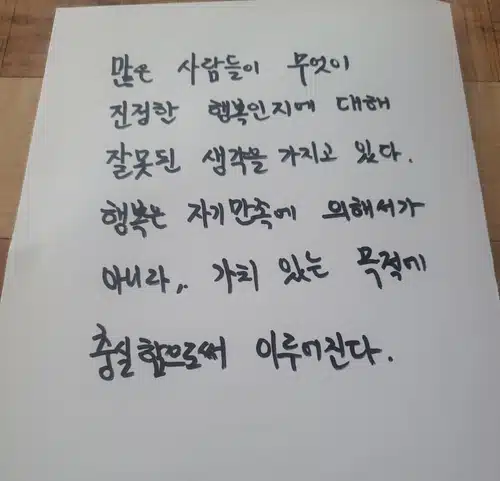 많은 사람들이 무엇이
진정한 행복인지에 대해
잘못된 생각을 가지고 있다.
행복은 자기만족에 의해서가
아니라, 가치 있는 목적에
충실함으로써 이루어진다.